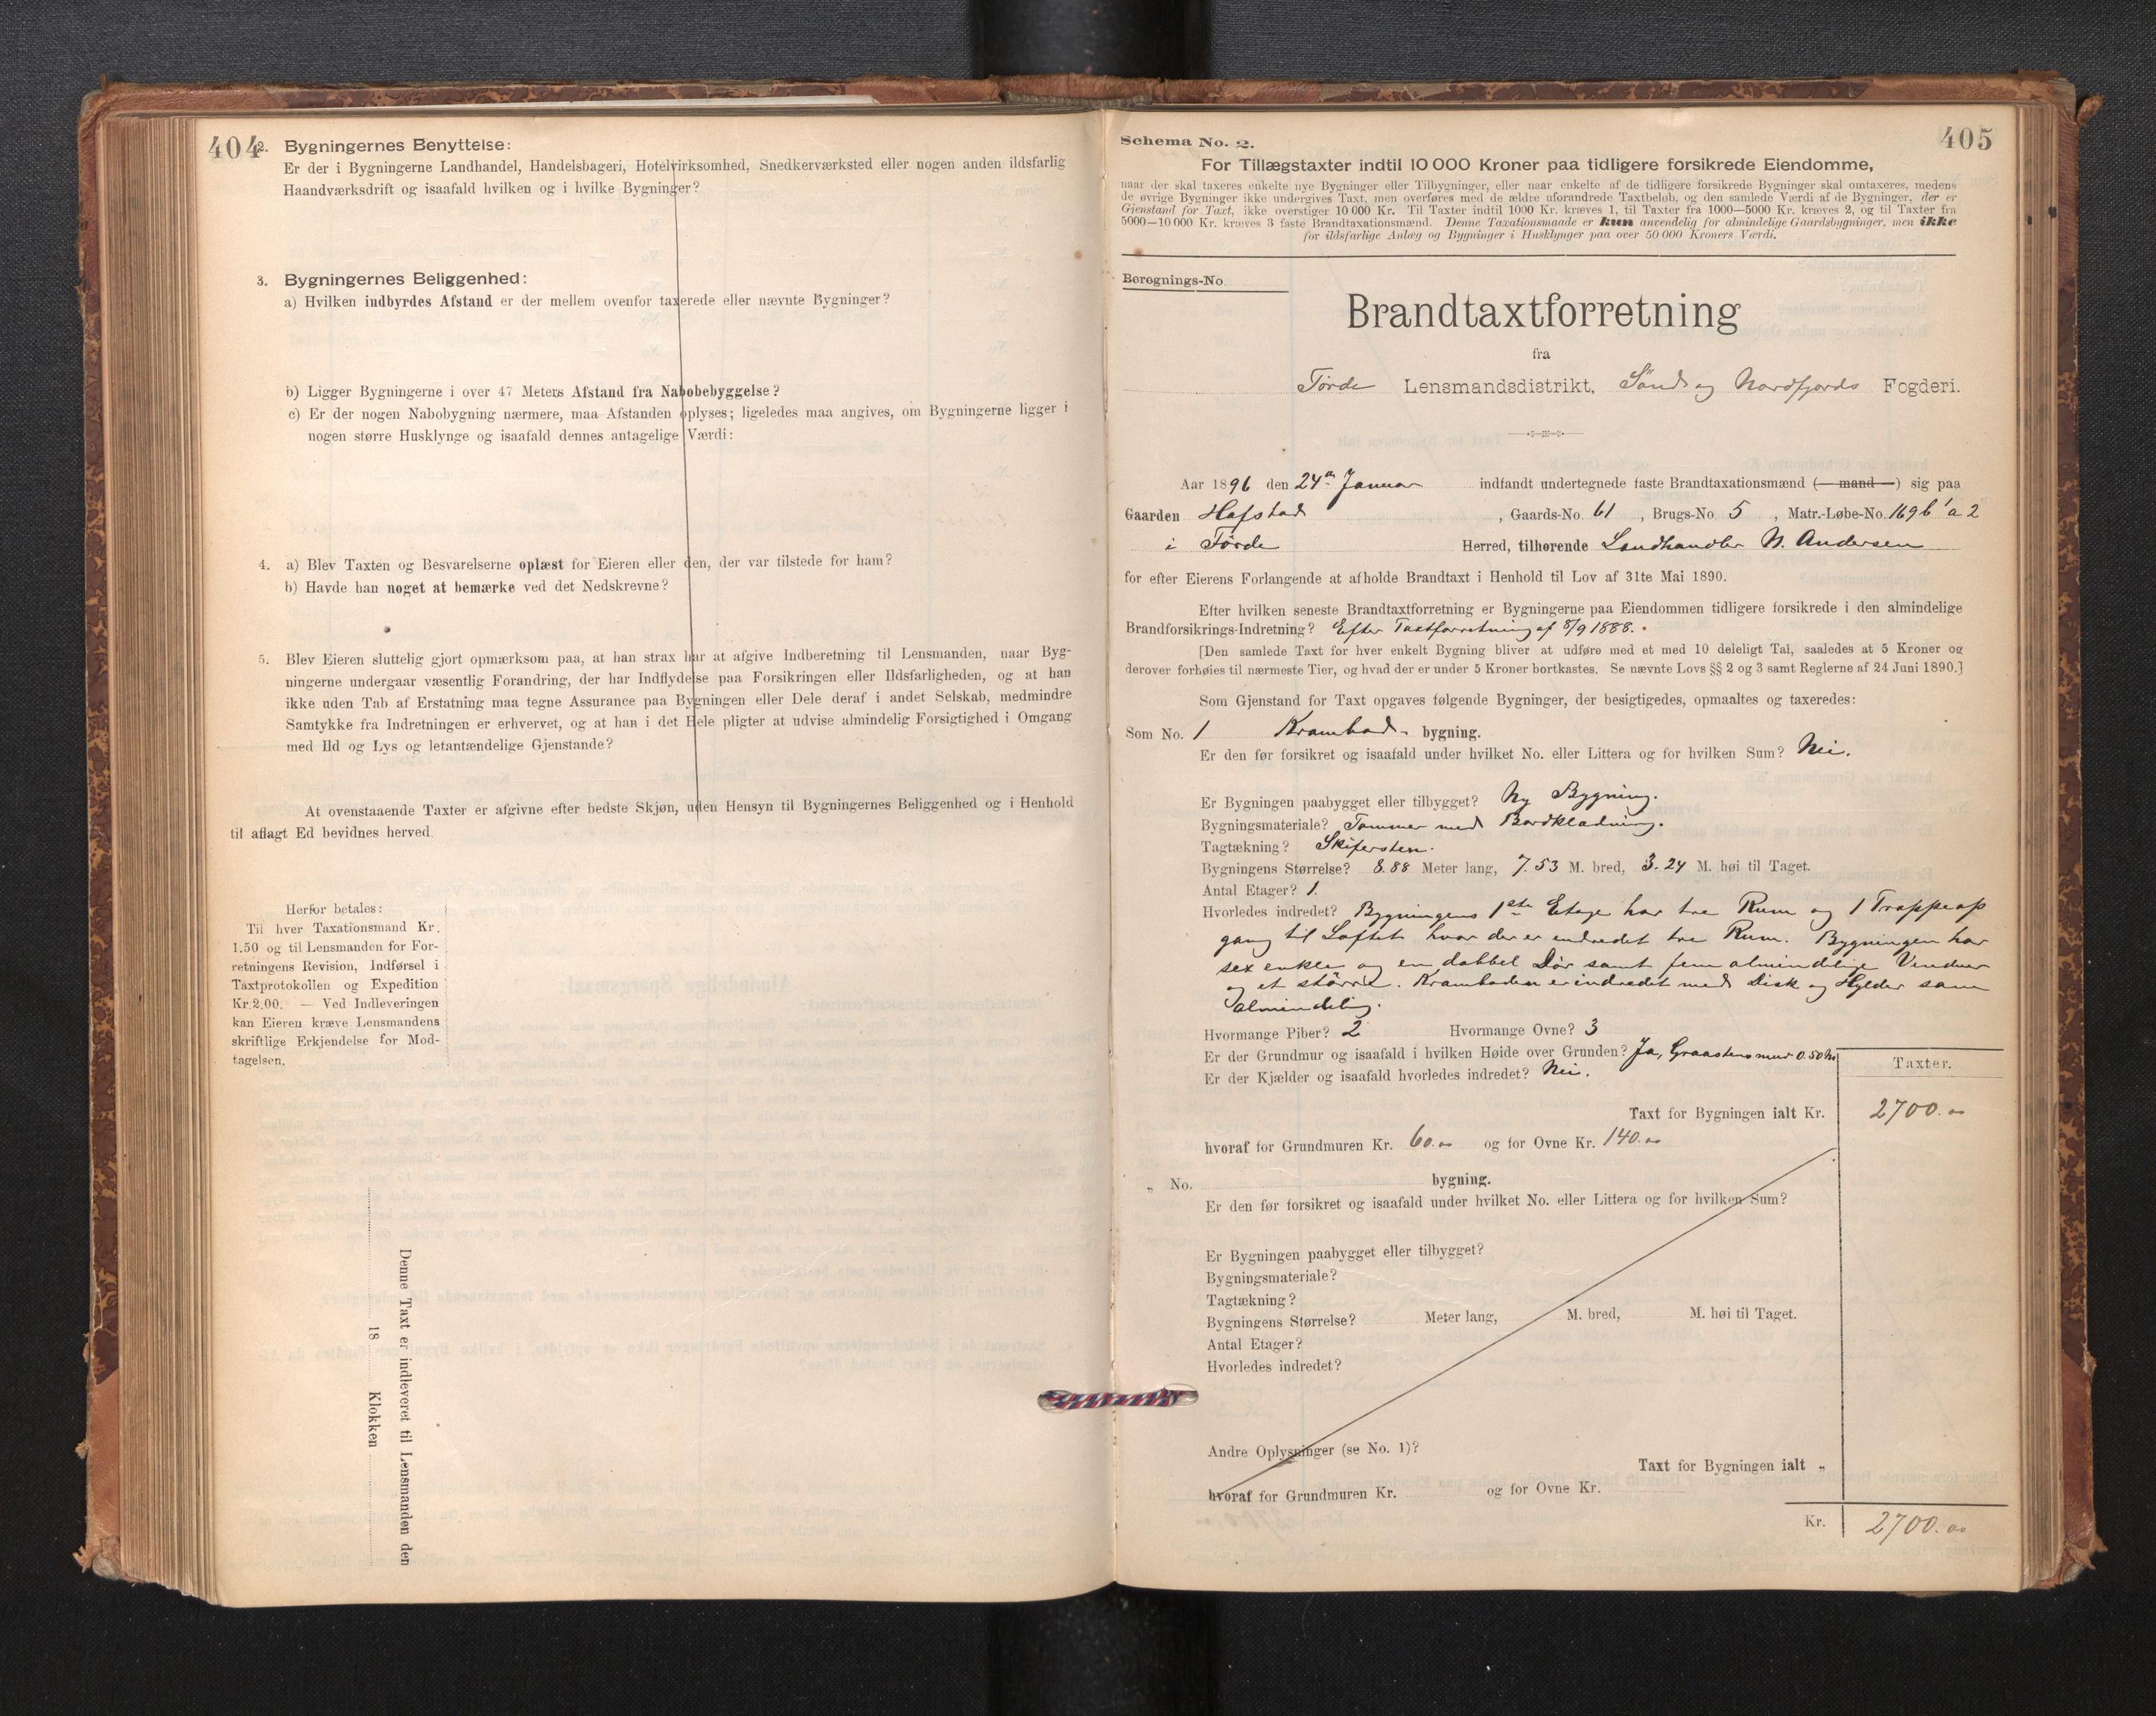 404
2. Bygningernes Benyttelse:
Er der i Bygningerne Landhandel, Handelsbageri, Hotelvirksomhed, Snedkerværksted eller nogen anden ildsfarlig
Haandværksdrift og isaafald hvilken og i hvilke Bygninger?
3. Bygningernes Beliggenhed:
a) Hvilken indbyrdes Afstand er der mellem ovenfor taxerede eller nævnte Bygninger?
b) Ligger Bygningerne i over 47 Meters Afstand fra Nabobebyggelse?
c) Er der nogen Nabobygning nærmere, maa Afstanden oplyses; ligeledes maa angives, om Bygningerne ligger i
nogen større Husklynge og isaafald dennes antagelige Værdi:
4. a) Blev Taxten og Besvarelserne oplæst for Eieren eller den, der var tilstede for ham?
b) Havde han noget at bemærke ved det Nedskrevne?
5. Blev Eieren sluttelig gjort opmærksom paa, at han strax har at afgive Indberetning til Lensmanden, naar Byg-
ningerne undergaar væsentlig Forandring, der har Indflydelse paa Forsikringen eller Ildsfarligheden, og at han
ikke uden Tab af Erstatning maa tegne Assurance paa Bygningen eller Dele deraf i andet Selskab, medmindre
Samtykke fra Indretningen er erhvervet, og at han i det Hele pligter at udvise almindelig Forsigtighed i Omgang
med Ild og Lys og letantændelige Gjenstande?
At ovenstaaende Taxter er afgivne efter bedste Skjøn, uden Hensyn til Bygningernes Beliggenhed og i Henhold
til aflagt Ed bevidnes herved.
Herfor betales:
Til hver Taxationsmand Kr.
1.50 og til Lensmanden for For-
retningens Revision, Indførsel i
Taxtprotokollen og Expedition
Kr. 2.00. — Ved Indleveringen
kan Eieren kræve Lensmandens
skriftlige Erkjendelse for Mod-
tagelsen.
Denne Taxt er indleveret til Lensmanden den
18 Klokken
405
Schema No. 2.
For Tillægstaxter indtil 10 000 Kroner paa tidligere forsikrede Eiendomme,
naar der skal taxeres enkelte nye Bygninger eller Tilbygninger, eller naar enkelte af de tidligere forsikrede Bygninger skal omtaxeres, medens
de øvrige Bygninger ikke undergives Taxt, men overføres med de ældre uforandrede Taxtbeløb, og den samlede Værdi af de Bygninger, der er
Gjenstand for Taxt, ikke overstiger 10 000 Kr. Til Taxter indtil 1000 Kr. kræves 1, til Taxter fra 1000—5000 Kr. kræves 2, og til Taxter fra
5000—10 000 Kr. kræves 3 faste Brandtaxationsmænd. Denne Taxationsmaade er kun anvendelig for almindelige Gaardsbygninger, men ikke
for ildsfarlige Anlæg og Bygninger i Husklynger paa over 50 000 Kroners Værdi.
Beregnings-No.
Brandtaxtforretning
fra
Førde Lensmandsdistrikt, Sønd og Nordfjords Fogderi.
Aar 1896 den 24de Januar indfandt undertegnede faste Brandtaxationsmænd (mand) sig paa
Gaarden Hafstad, Gaards-No. 61, Brugs-No 5, Matr.-Løbe-No. 169 b 1 a 2
i Førde Herred, tilhørende Landhandler N. Andersen
for efter Eierens Forlangende at afholde Brandtaxt i Henhold til Lov af 31te Mai 1890.
Efter hvilken seneste Brandtaxtforretning er Bygningerne paa Eiendommen tidligere forsikrede i den almindelige
Brandforsikrings-Indretning? Efter Taxtforretning af 8/9 1888.
[Den samlede Taxt for hver enkelt Bygning bliver at udføre med et med 10 deleligt Tal, saaledes at 5 Kroner og
derover forhøies til nærmeste Tier, og hvad der er under 5 Kroner bortkastes. Se nævnte Lovs §§ 2 og 3 samt Reglerne af 24 Juni 1890.]
Som Gjenstand for Taxt opgaves følgende Bygninger, der besigtigedes, opmaaltes og taxeredes:
Som No. 1 Krambod- bygning.
Er den før forsikret og isaafald under hvilket No. eller Littera og for hvilken Sum? Nei.
Er Bygningen paabygget eller tilbygget? Ny Bygning.
Bygningsmateriale? Tømmer med Bordklædning.
Tagtækning? Skifersten.
Bygningens Størrelse? 8.88 Meter lang, 7.53 M. bred, 3.24 M. høi til Taget.
Antal Etager? 1.
Hvorledes indredet? Bygningens 1ste Etage har tre Rum og 1 Trappeop
gang til Loftet hvor der er indredet tre Rum. Bygningen har
sex enkle og en dobbel Dør samt fem almindelige Vinduer
og et større. Kramboden er indredet med Disk og Hylder som
almindelig.
Hvormange Piber? 2 Hvormange Ovne? 3
Er der Grundmur og isaafald i hvilken Høide over Grunden? Ja, Graastensmur 0.50 M.
Er der Kjælder og isaafald hvorledes indredet? Nei.
Taxter.
Taxt for Bygningen ialt Kr. 2700.00
hvoraf for Grundmuren Kr. 60.00 og for Ovne Kr. 140.00
„ No. bygning.
Er den før forsikret og isaafald under hvilket No. eller Littera og for hvilken Sum?
Er Bygningen paabygget eller tilbygget?
Bygningsmateriale?
Tagtækning?
Bygningens Størrelse? Meter lang, M. bred, M. høi til Taget.
Antal Etager?
Hvorledes indredet?
Andre Oplysninger (se No. 1)?
Taxt for Bygningen ialt „
hvoraf for Grundmuren Kr. og for Ovne Kr.
Kr. 2700.00